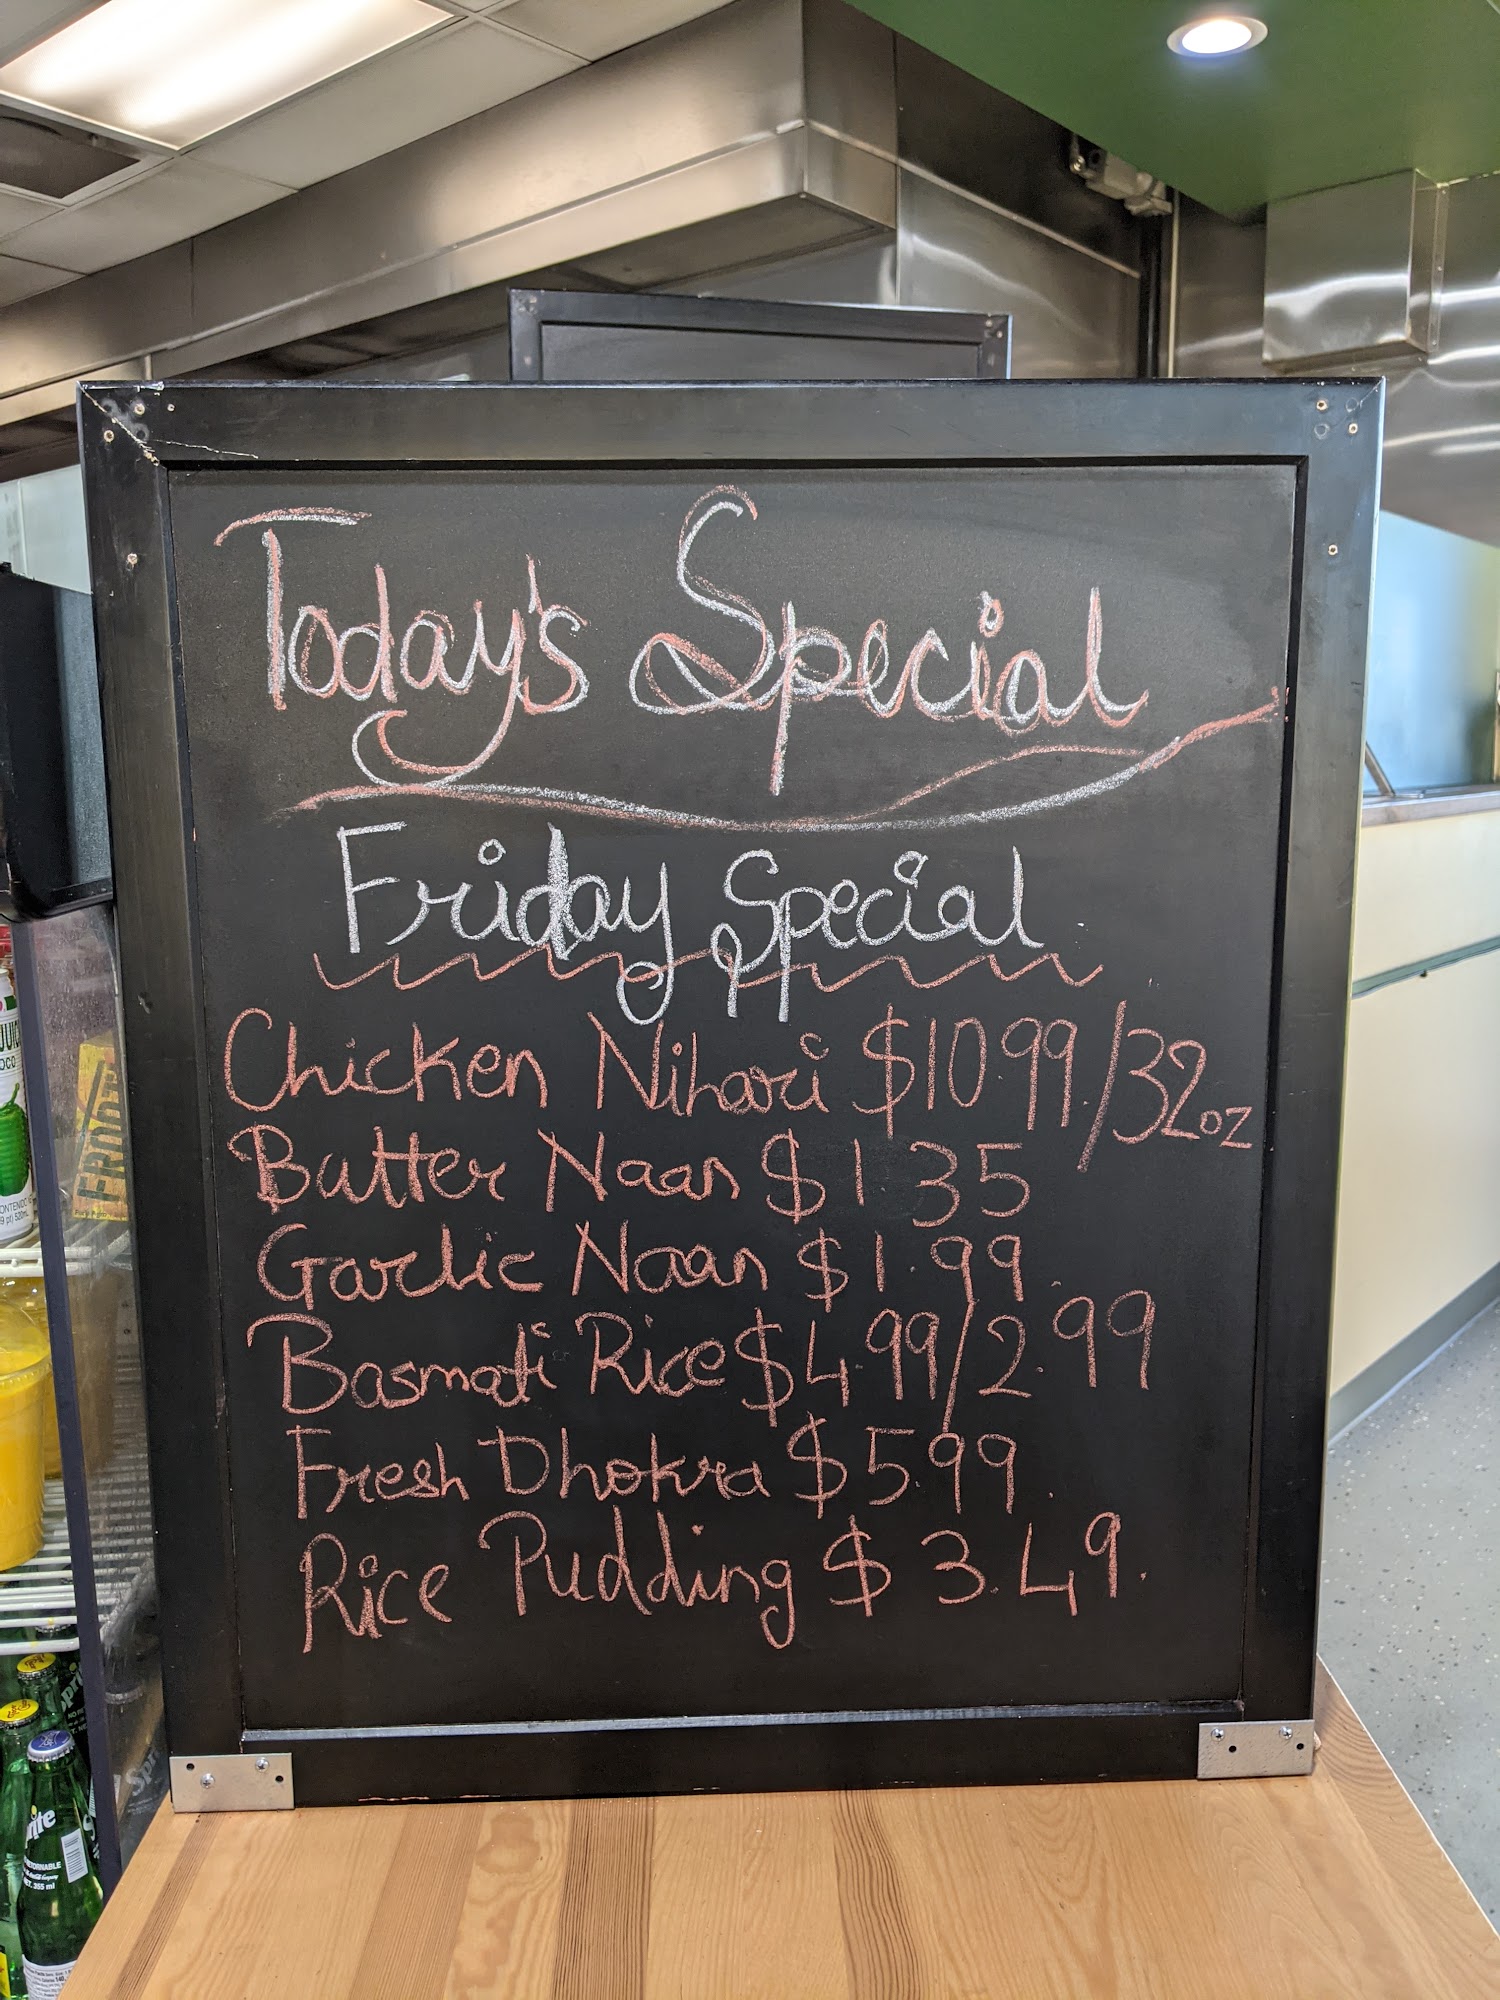 Today's Special
Friday Special
Chicken Nihari $10 99/32oz
Butter Naan $1 35
Garlic Naan $1.99.
Basmati Rice $4.99/2.99
Fresh Dhokra $5.99.
Rice Pudding $3.49.
FROOTI
Sprite
355 ml